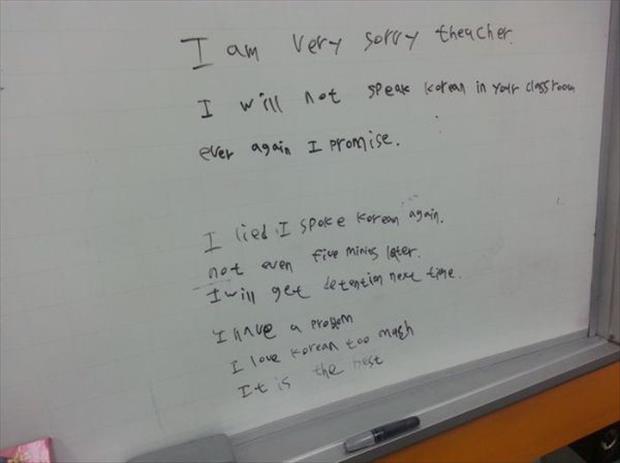 I am very sorry theacher.
I will not speak korean in your classroom
ever again I promise.
I lied I spoke korean again.
not even five mins later.
I will get detention next time.
I have a problem
I love korean too much
It is the best